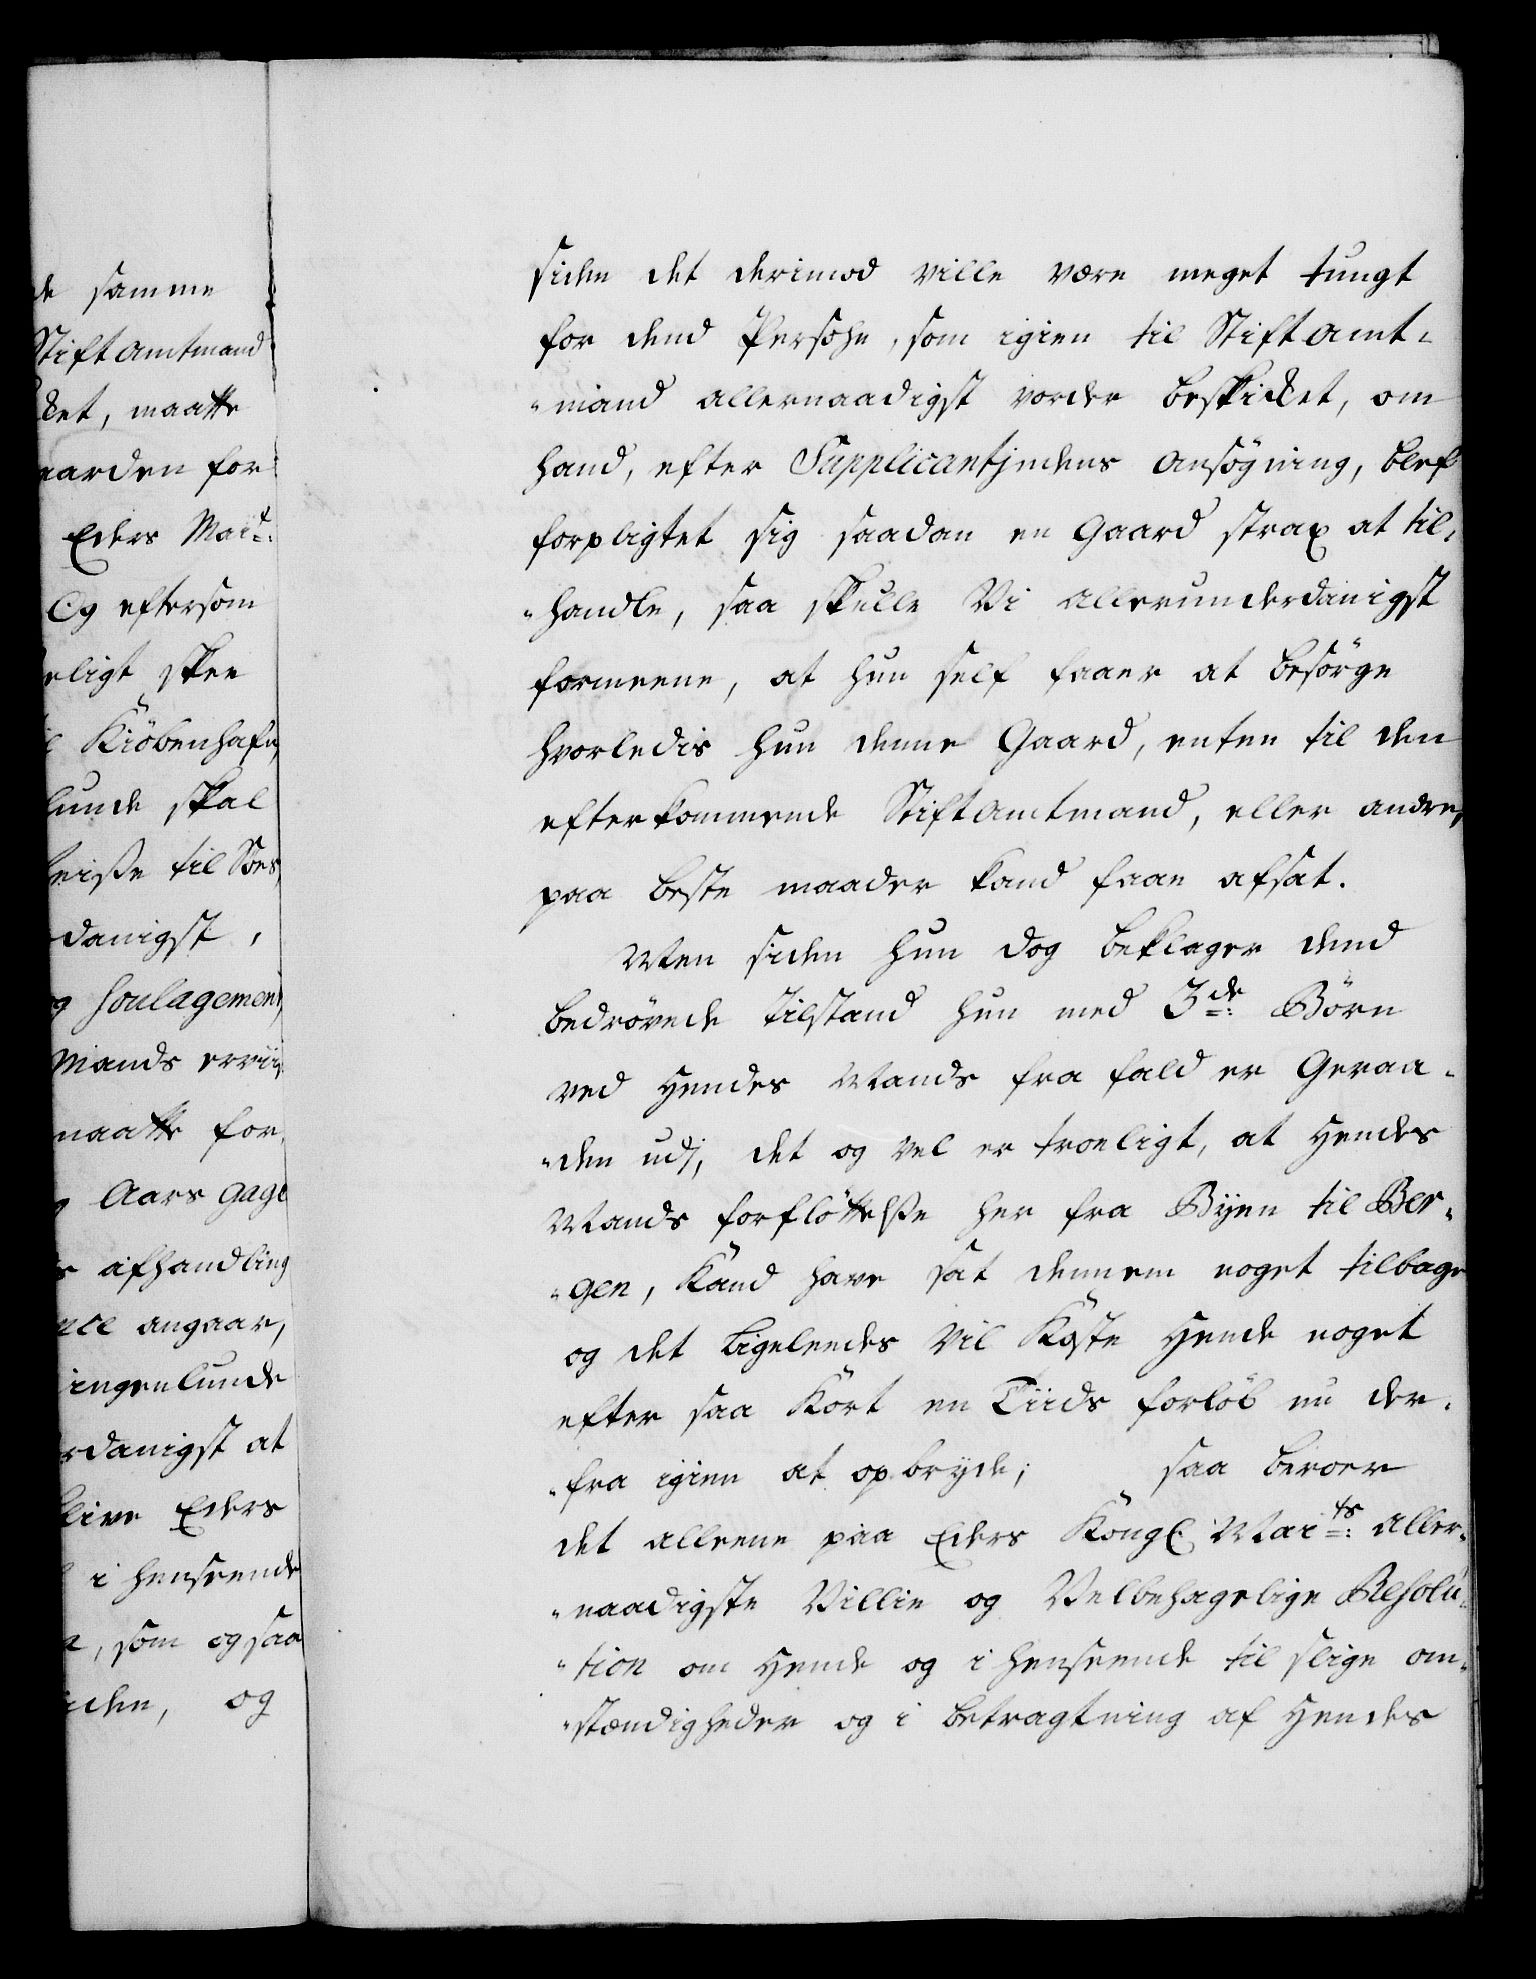 de samme
Stiftamtmand
ket, maatte
aarden for
Eders Mai^t:
Og eftersom
eligt skee
l Kiöbenhafn,
lunde skal
eiße til Söes,
danigst,
g Soulagement,
Mands erviis
maatte for,
Aars gage
afhandling
nce angaar,
ingenlunde
rdanigst at
blive Eders
i henseende
, som og saa
iden, og
siden det derimod ville være meget tungt
for dend Persohn, som igien til Stiftamt-
-mand allernaadigst vorder beskicket, om
hand, efter Supplicantjndens ansögning, blef
forpligtet sig saadan en Gaard strax at til-
-handle, saa skulle Vi allerunderdanigst
formeene, at hun self faaer at besörge
hvorledis hun denne Gaard, enten til den
efterkommende Stiftamtmand, eller andre,
paa beste maader kand faae afsat.
Men siden hun dog beklager dend
bedrövede tilstand hun med 3de: Börn
ved Hendes Mands fra fald er Geraa-
-den udj, det og vel er troeligt, at Hendes
Mands forflöttelße her fra Byen til Ber-
-gen, Kand have sat dennem noget tilbage
og det Ligeleedes Vil Koste Hende noget
efter saa Kort en Tiids forlöb nu der-
-fra igien at opbryde; saa beroer
det alleene paa Eders Kongl: Mai^ts: Aller-
-naadigste Villie og Velbehagelige Resolu-
-tion om Hende og i henseende til slige om-
-stændigheder og i betragtning af Hendes